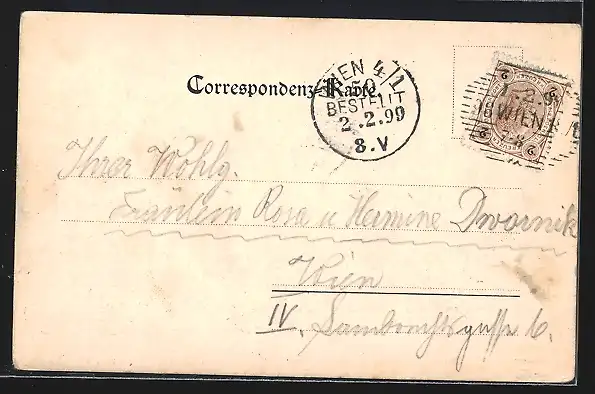 Correspondenz-Karte.
WIEN 4/1
50
BESTELLT
2.2.99
8.V
2 2
1.2.99
WIEN
2 2
Ihrer Wohlg.
Fräulein Rosa u Hermine Dwornik
Wien
IV. Lambrechtsgasse 6.